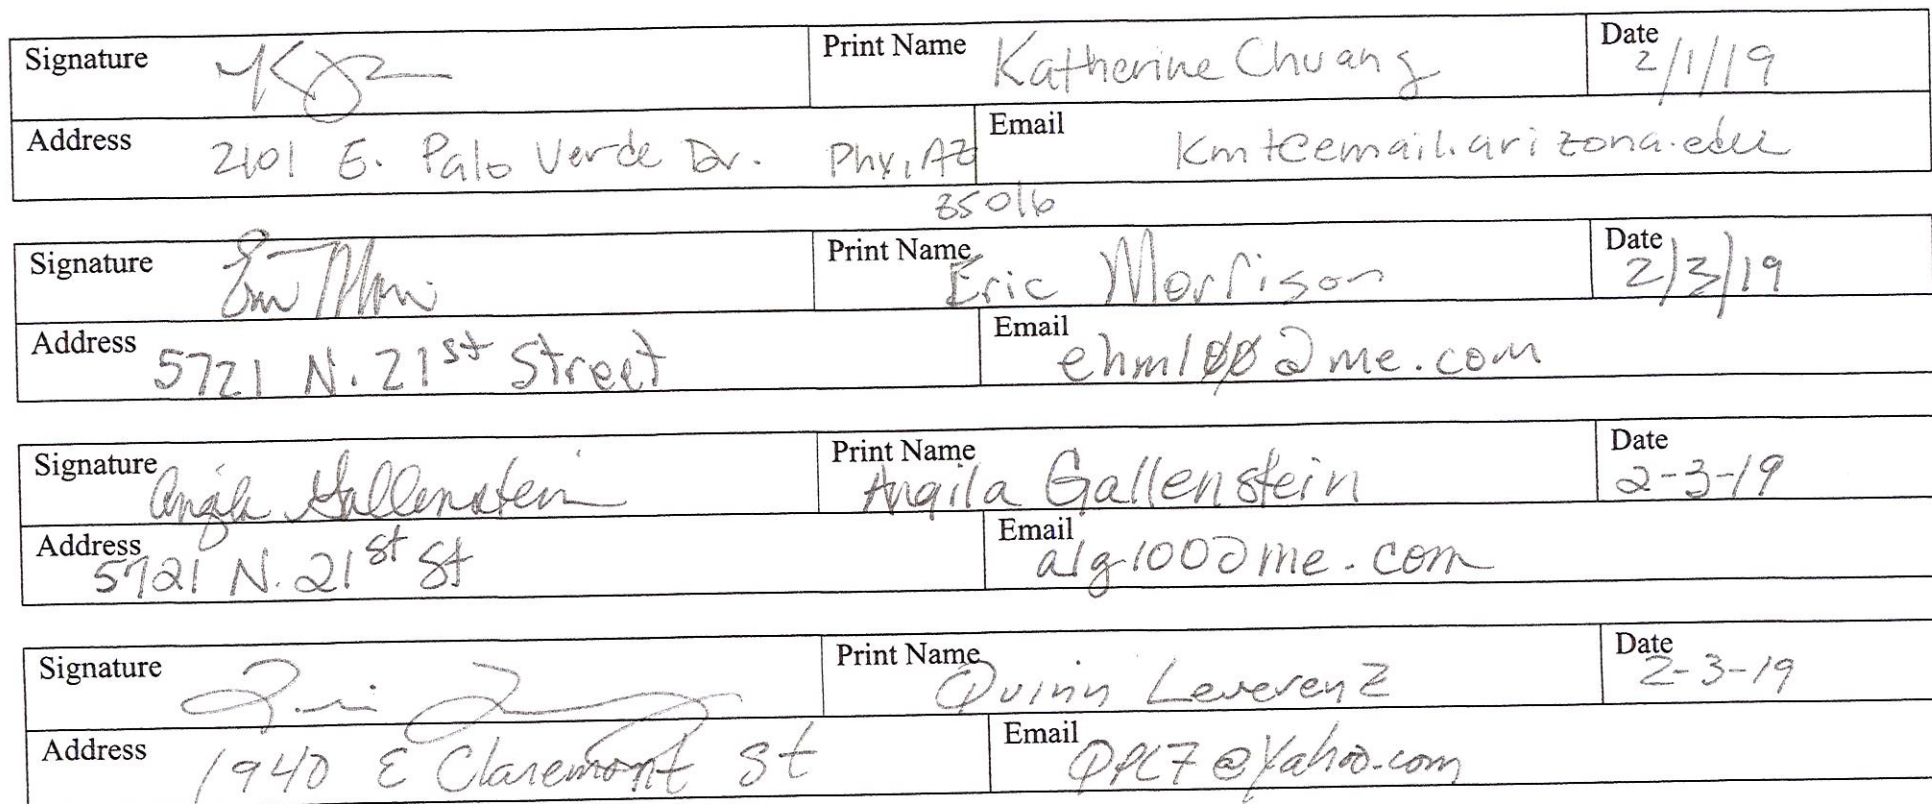 Signature Print Name Katherine Chuang Date 2/1/19
Address 2101 E. Palo Verde Dr. Phx, AZ Email Kmt@email.arizona.edu
85016
Signature Print Name Eric Morrison Date 2/3/19
Address 5721 N. 21st Street Email ehm100@me.com
Signature Angila Gallenstein Print Name Angila Gallenstein Date 2-3-19
Address 5721 N. 21st St Email alg100@me.com
Signature Print Name Quinn Leverenz Date 2-3-19
Address 1940 E Claremont St Email @yahoo.com